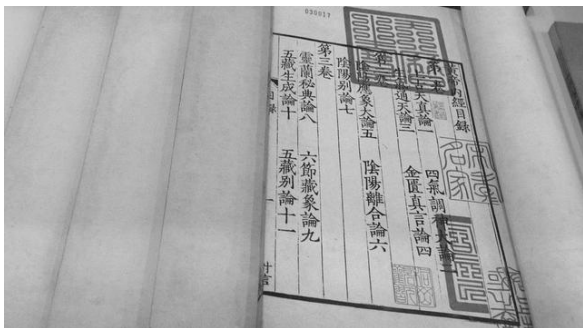 黃帝內經目錄
第一卷
上古天真論一 四氣調神大論二
生氣通天論三 金匱真言論四
第二卷
陰陽應象大論五 陰陽離合論六
陰陽別論七
第三卷
靈蘭秘典論八 六節藏象論九
五藏生成論十 五藏別論十一
目錄